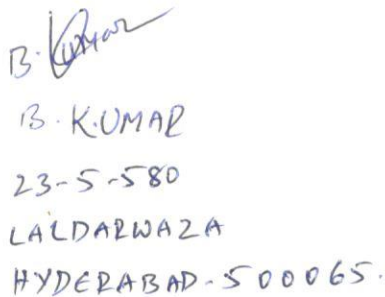 B. Kumar
B. KUMAR
23-5-580
LALDARWAZA
HYDERABAD - 500065.